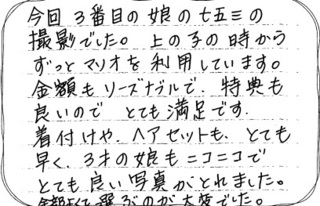 今回3番目の娘の七五三の
撮影でした。上の子の時から
ずっとマリオを利用しています。
金額もリーズナブルで、特典も
良いので とても満足です.
着付けや、ヘアセットも、とても
早く、3才の娘もニコニコで
とても良い写真がとれました。
全部よくて選ぶのが大変でした。